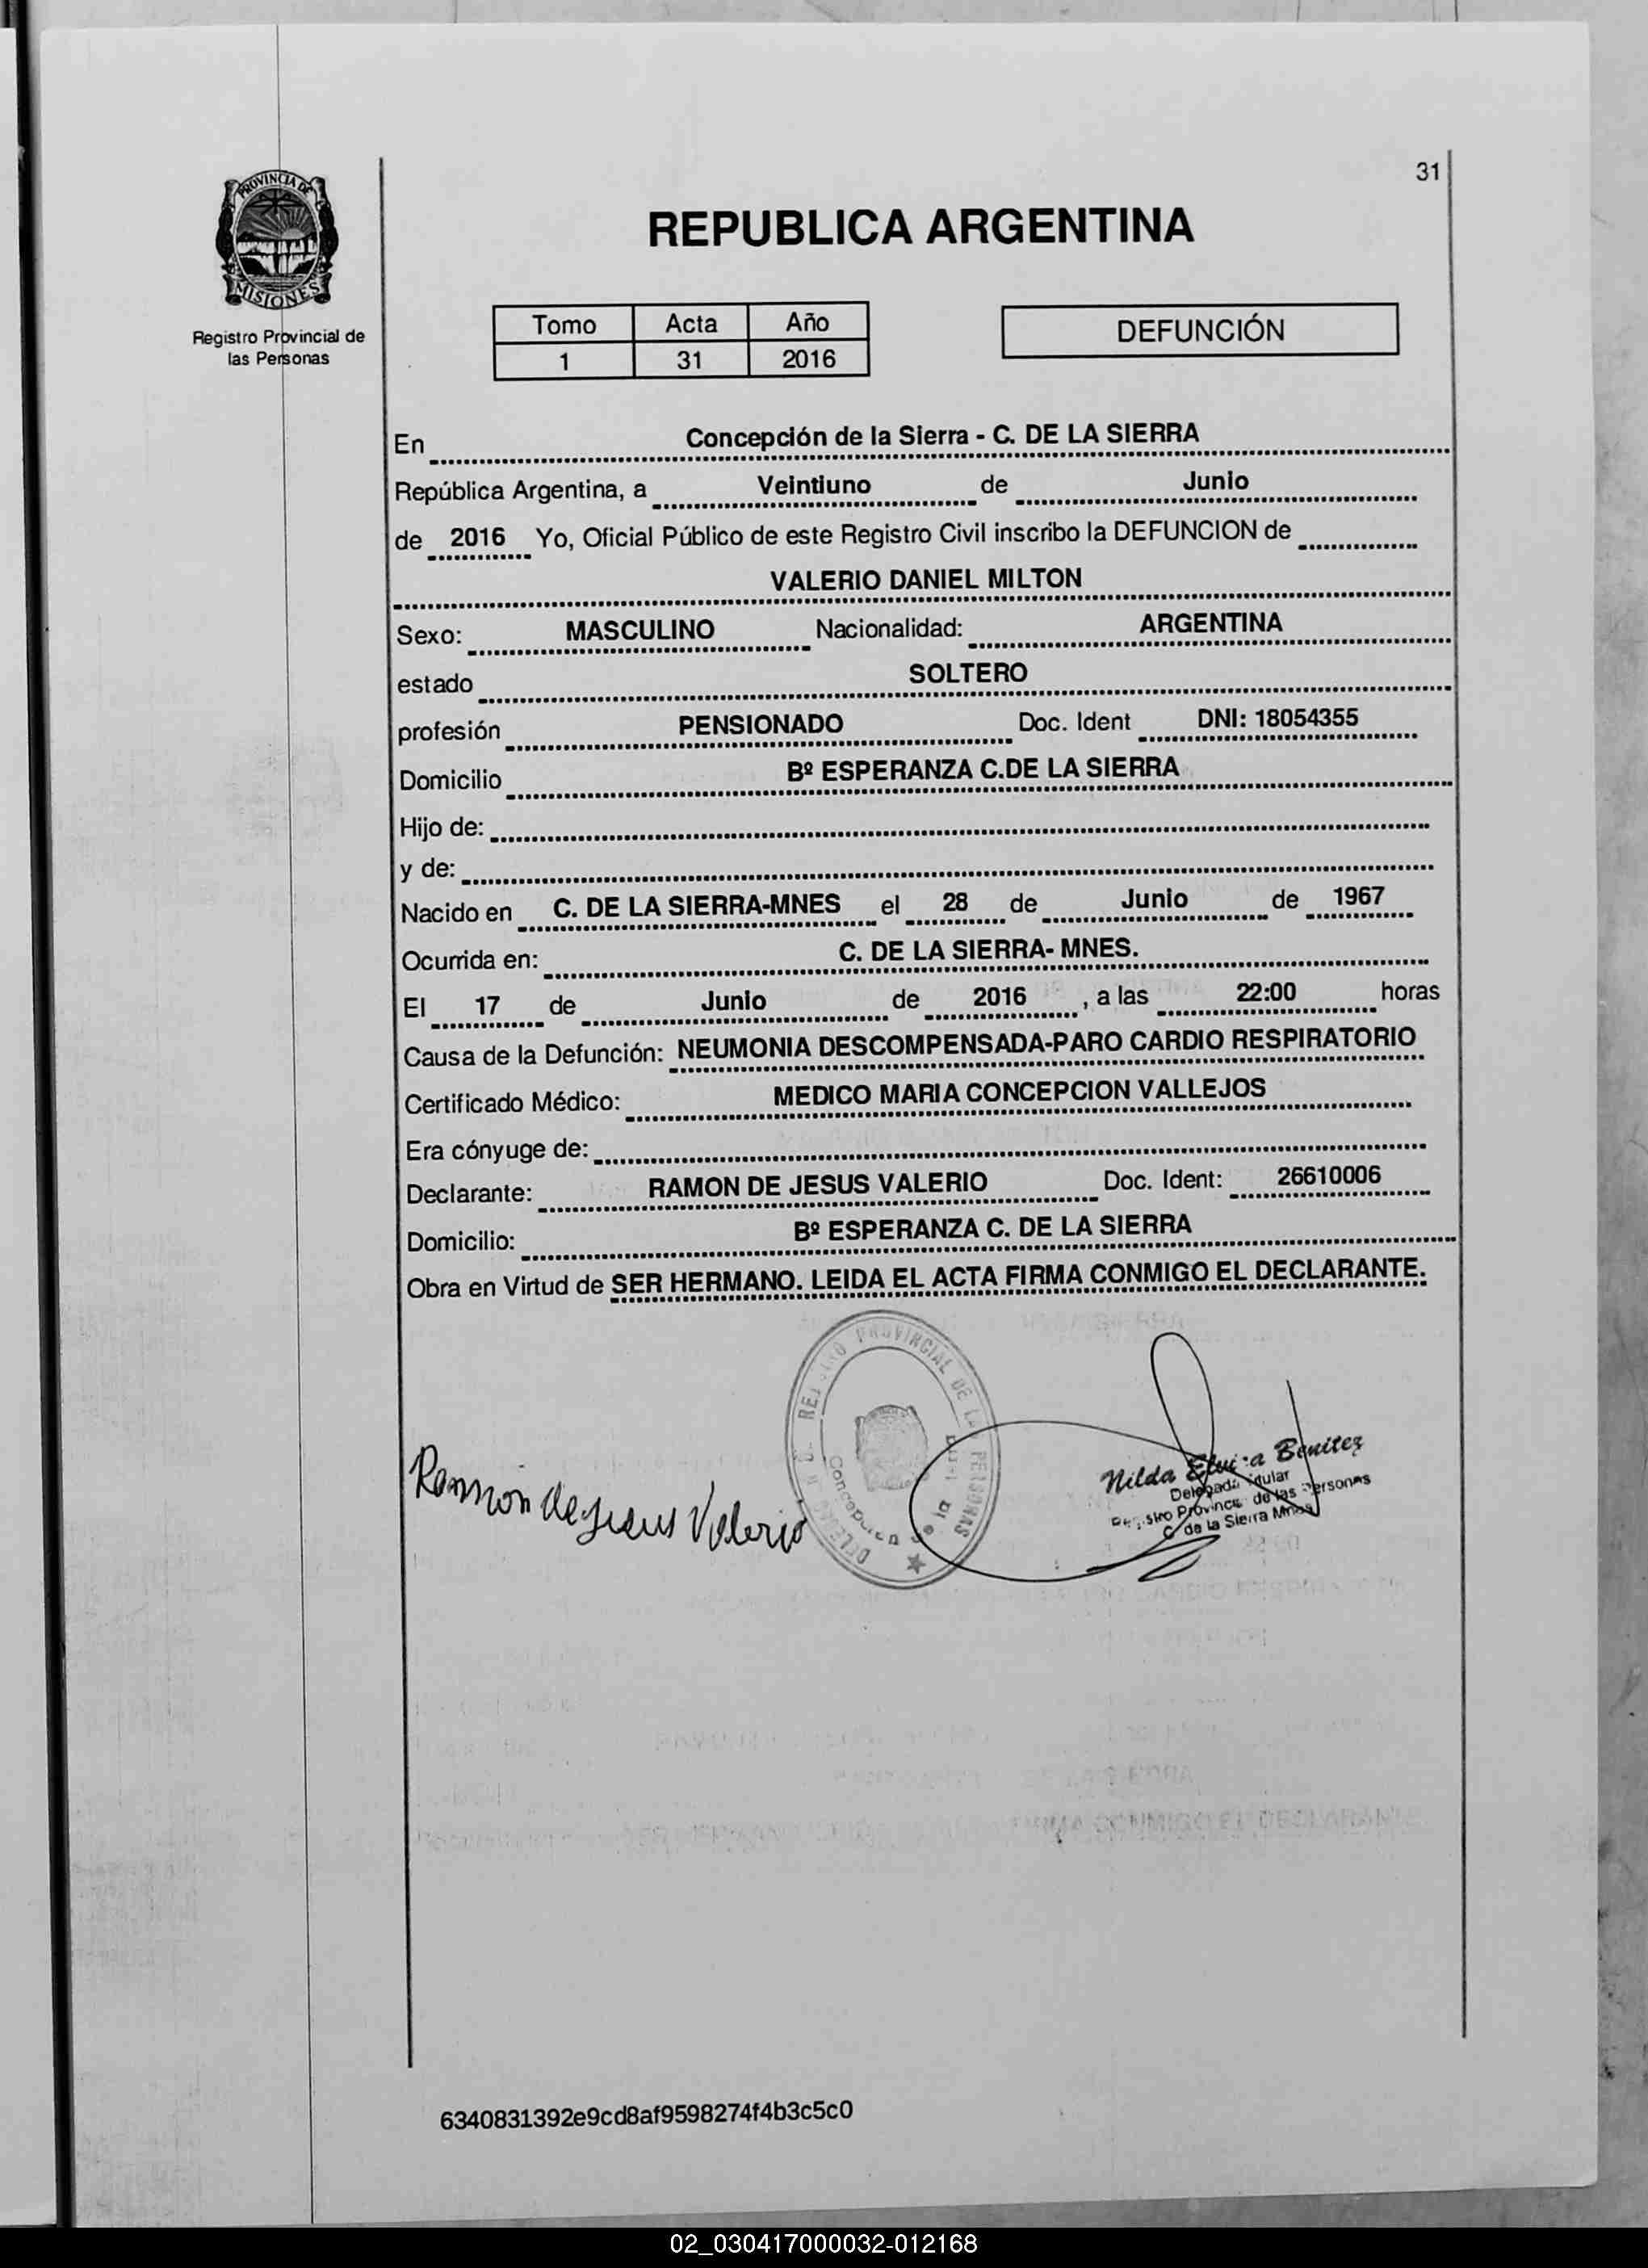 31
PROVINCIA DE
MISIONES
Registro Provincial de
las Personas
REPUBLICA ARGENTINA
Tomo Acta Año
1 31 2016
DEFUNCIÓN
En Concepción de la Sierra - C. DE LA SIERRA
República Argentina, a Veintiuno de Junio
de 2016 Yo, Oficial Público de este Registro Civil inscribo la DEFUNCION de
VALERIO DANIEL MILTON
Sexo: MASCULINO Nacionalidad: ARGENTINA
estado SOLTERO
profesión PENSIONADO Doc. Ident DNI: 18054355
Domicilio Bº ESPERANZA C.DE LA SIERRA
Hijo de:
y de:
Nacido en C. DE LA SIERRA-MNES el 28 de Junio de 1967
Ocurrida en: C. DE LA SIERRA- MNES.
El 17 de Junio de 2016 , a las 22:00 horas
Causa de la Defunción: NEUMONIA DESCOMPENSADA-PARO CARDIO RESPIRATORIO
Certificado Médico: MEDICO MARIA CONCEPCION VALLEJOS
Era cónyuge de:
Declarante: RAMON DE JESUS VALERIO Doc. Ident: 26610006
Domicilio: Bº ESPERANZA C. DE LA SIERRA
Obra en Virtud de SER HERMANO. LEIDA EL ACTA FIRMA CONMIGO EL DECLARANTE.
PROVINCIAL DE LAS PERSONAS
Ramón de Jesus Valerio
Nilda Benitez
de las Personas
C. de la Sierra Mnes
6340831392e9cd8af9598274f4b3c5c0
02_030417000032-012168